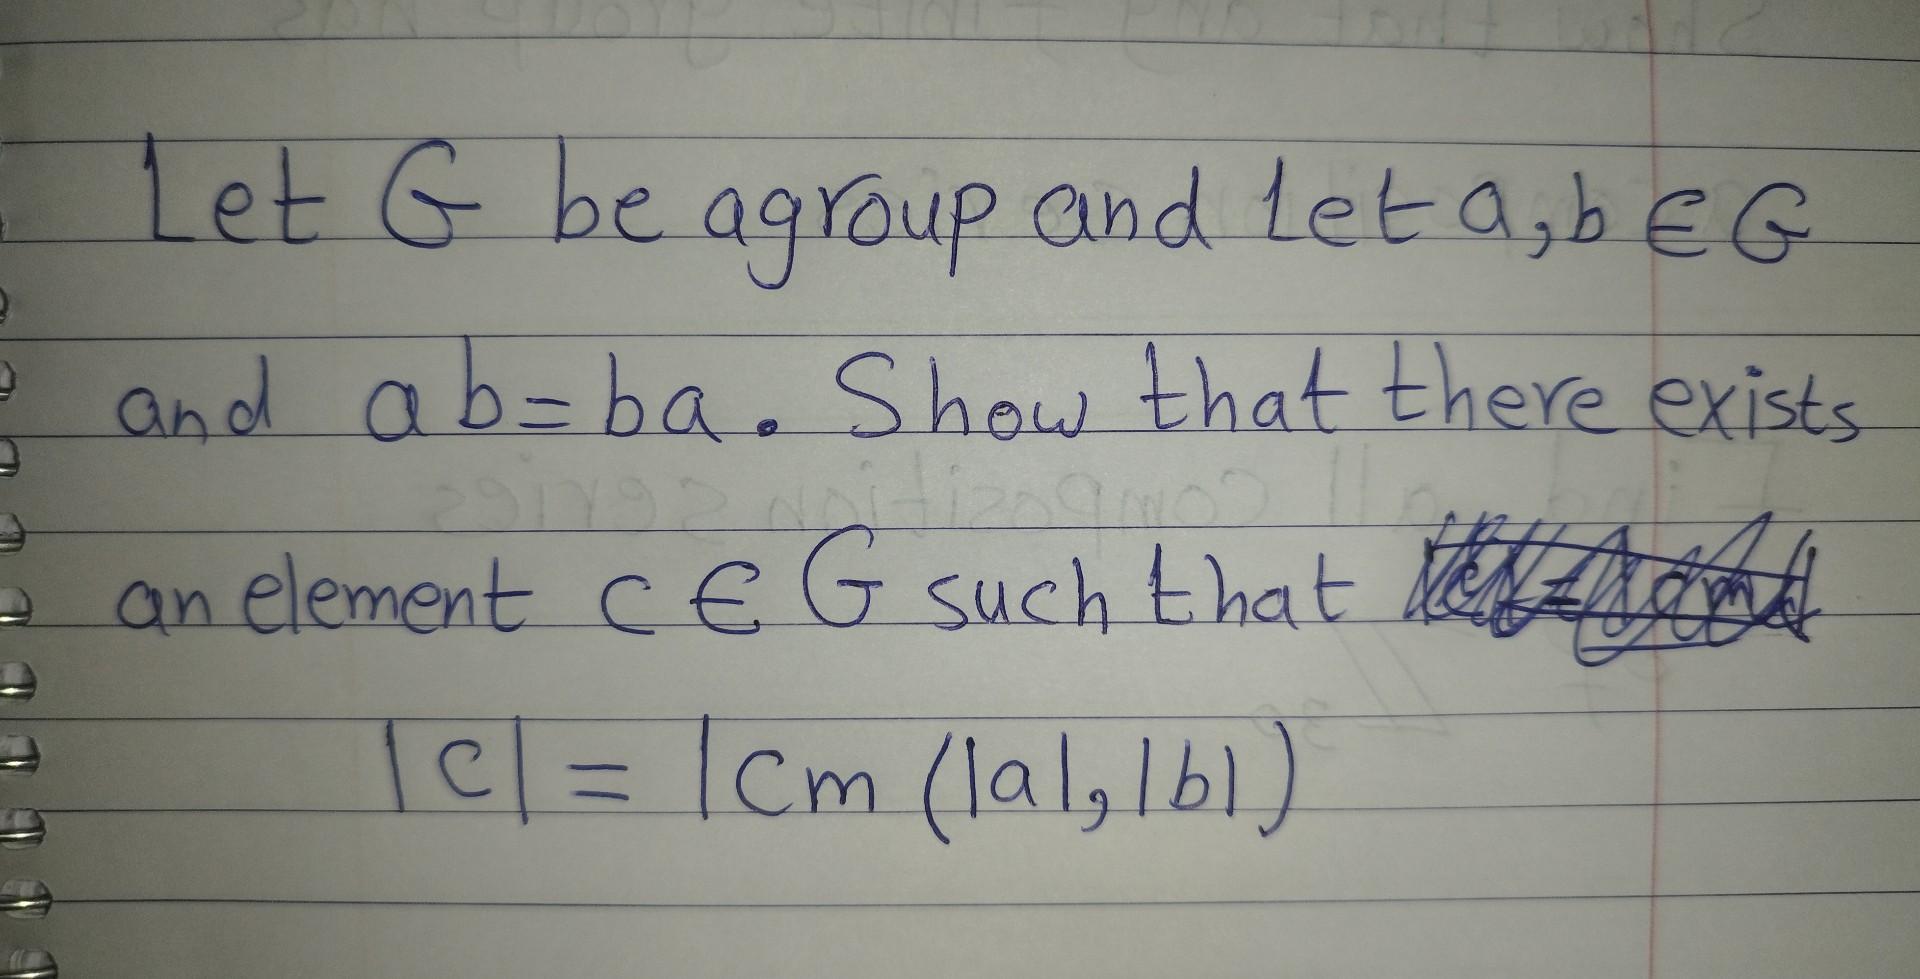 Let G be agroup and let a,b ∈ G
and ab=ba. Show that there exists
an element c ∈ G such that
|c| = lcm (|a|, |b|)